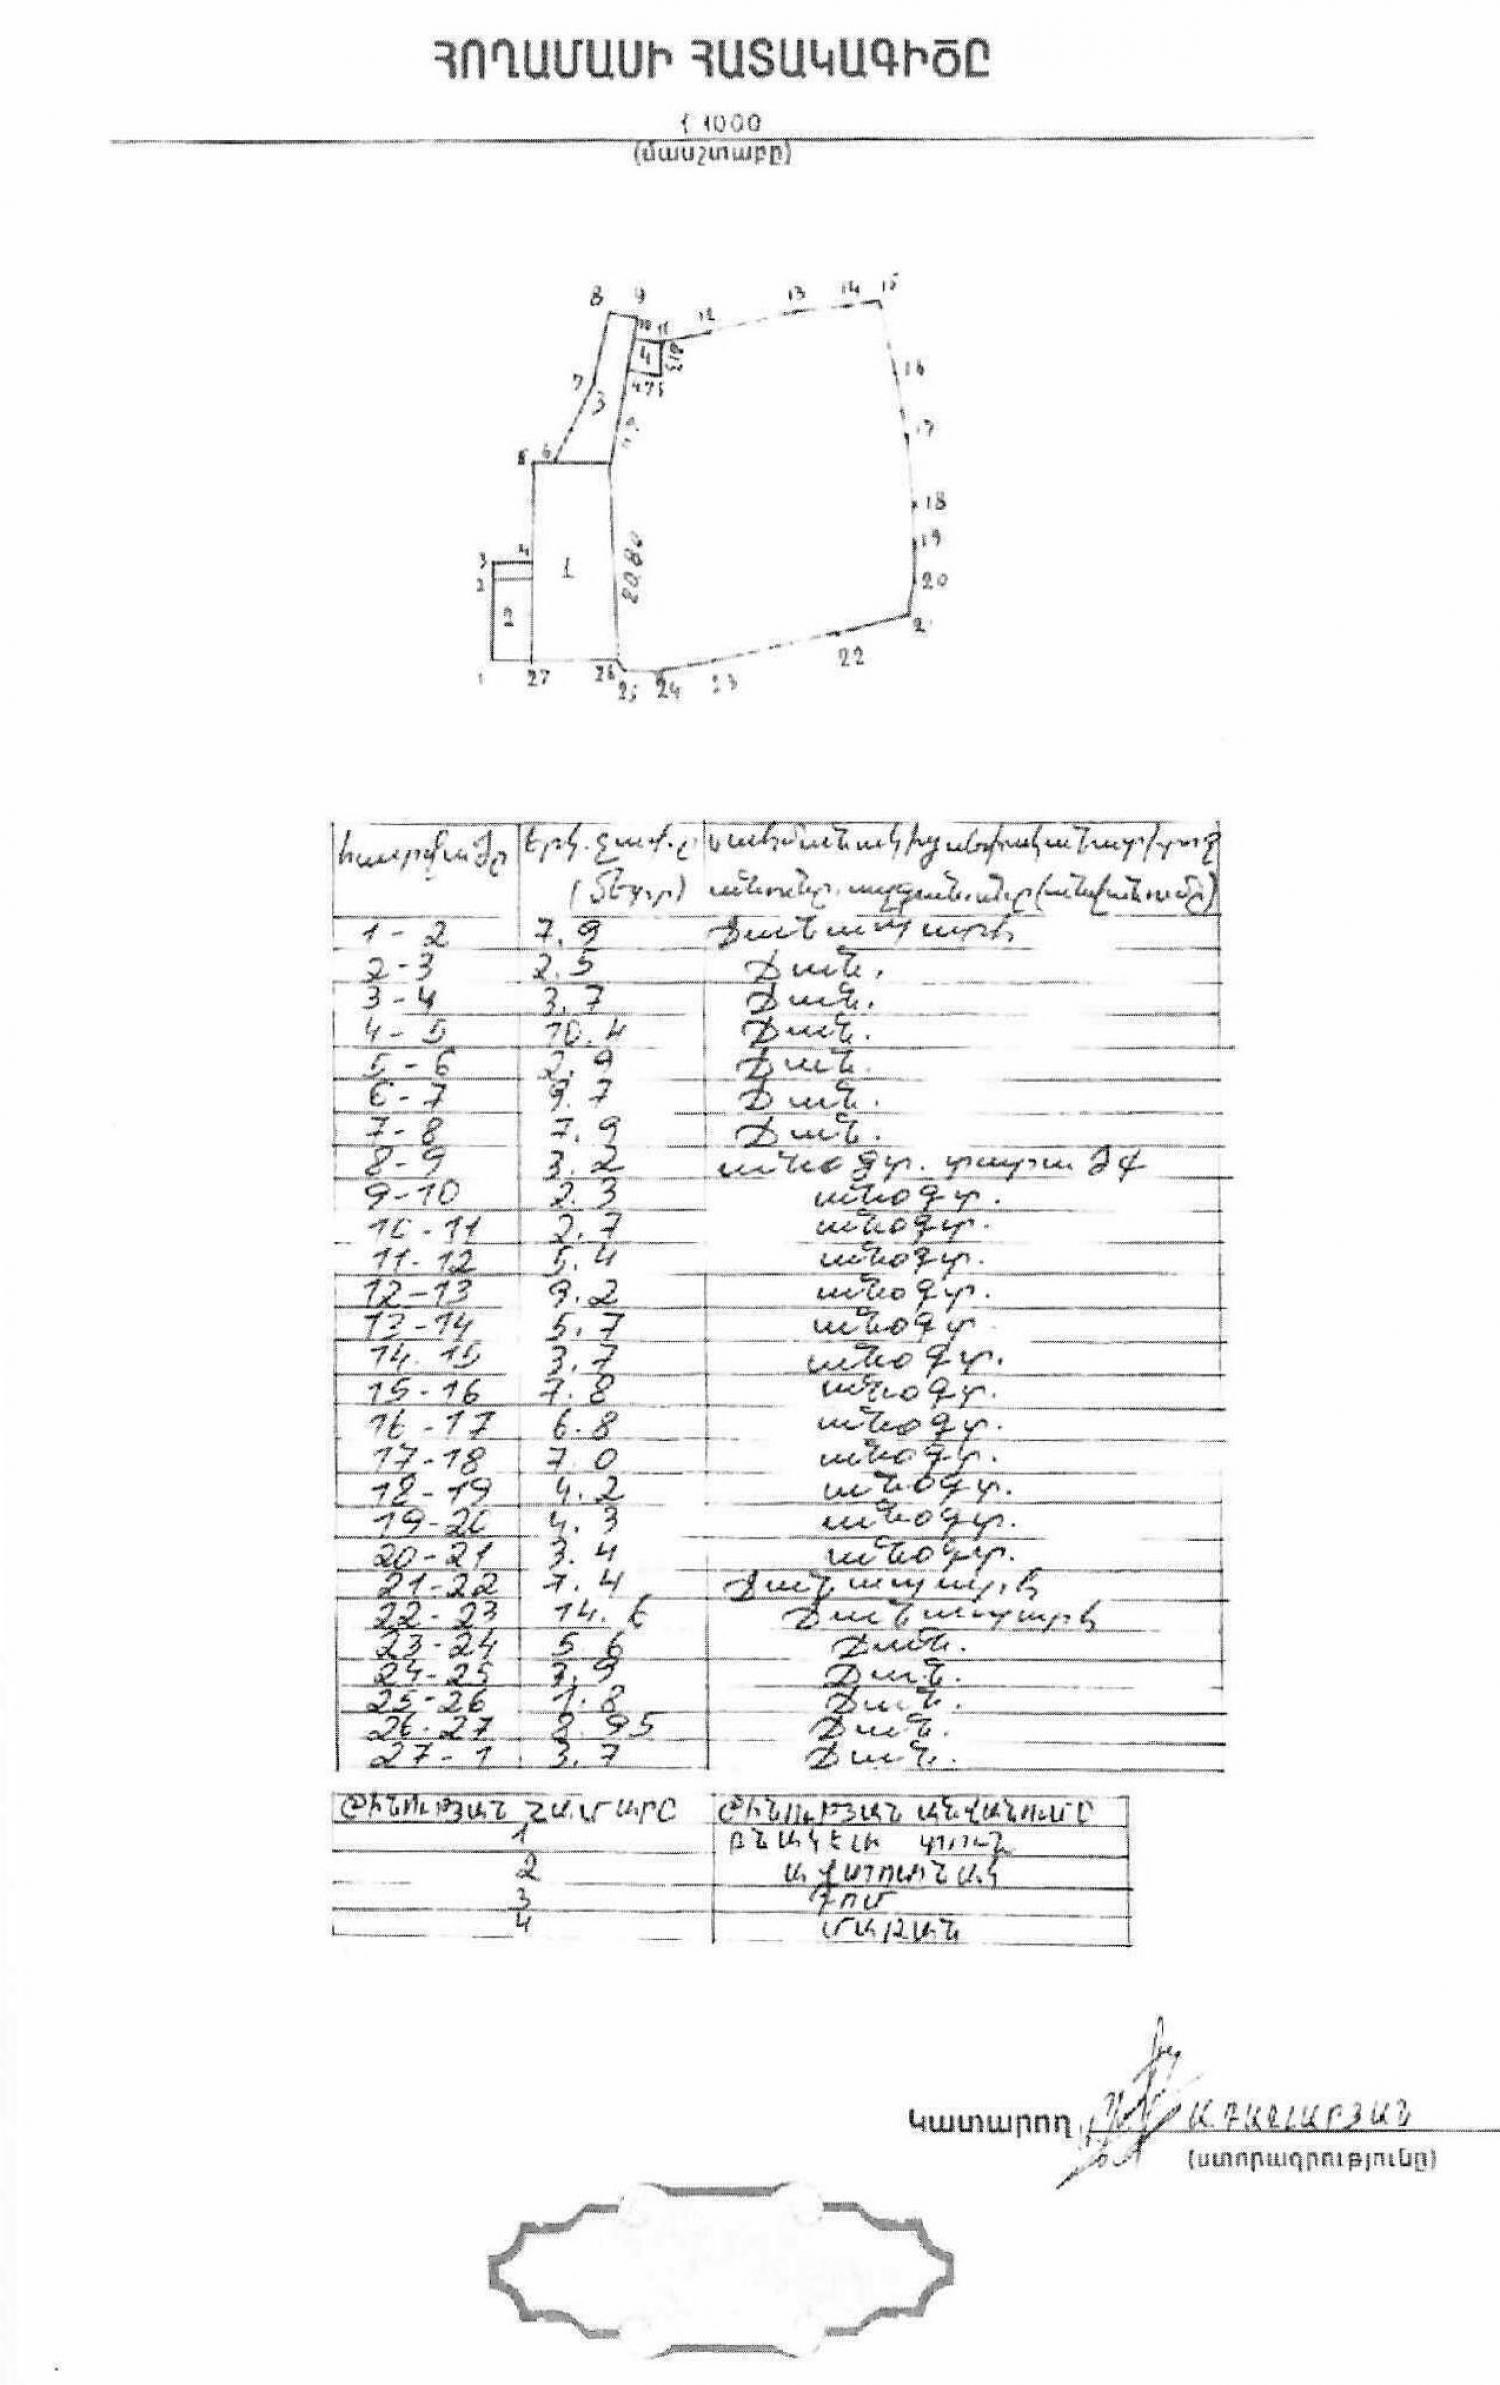 ՀՈՂԱՄԱՍԻ ՀԱՏԱԿԱԳԻԾԸ
1 1000
(մասշտաբը)
8 9 10 11 12 13 14 15
4
7 3
4.75
16
17
5 6
18
3 4
19
1 20.80
2
20
2
21
22
1 27 26 25 24 23
հատվածը երկ. չափ.ը
(մետր)
1-2 7.9 Ճանապարհ
2-3 2.5 Ճան.
3-4 3.7 Ճան.
4-5 10.4 Ճան.
5-6 2.9 Ճան.
6-7 9.7 Ճան.
7-8 7.9 Ճան.
8-9 3.2 անօգտ. տարածք
9-10 2.3 անօգտ.
10-11 2.7 անօգտ.
11-12 5.4 անօգտ.
12-13 9.2 անօգտ.
13-14 5.7 անօգտ
14-15 3.7 անօգտ.
15-16 7.8 անօգտ.
16-17 6.8 անօգտ.
17-18 7.0 անօգտ.
18-19 4.2 անօգտ.
19-20 4.3 անօգտ.
20-21 3.4 անօգտ.
21-22 7.4 Ճանապարհ
22-23 14. Ճանապարհ
23-24 5.6 Ճան.
24-25 3.9 Ճան.
25-26 1.8 Ճան.
26-27 8.95 Ճան.
27-1 3.7 Ճան.
ՇԻՆՈՒԹՅԱՆ ՀԱՄԱՐԸ ՇԻՆՈՒԹՅԱՆ ԱՆՎԱՆՈՒՄԸ
1 ԲՆԱԿԵԼԻ ՏՈՒՆ
2 ԱՎՏՈՏՆԱԿ
3 ԳՈՄ
4 ՄԱՐԱՆ
Կատարող
(ստորագրությունը)